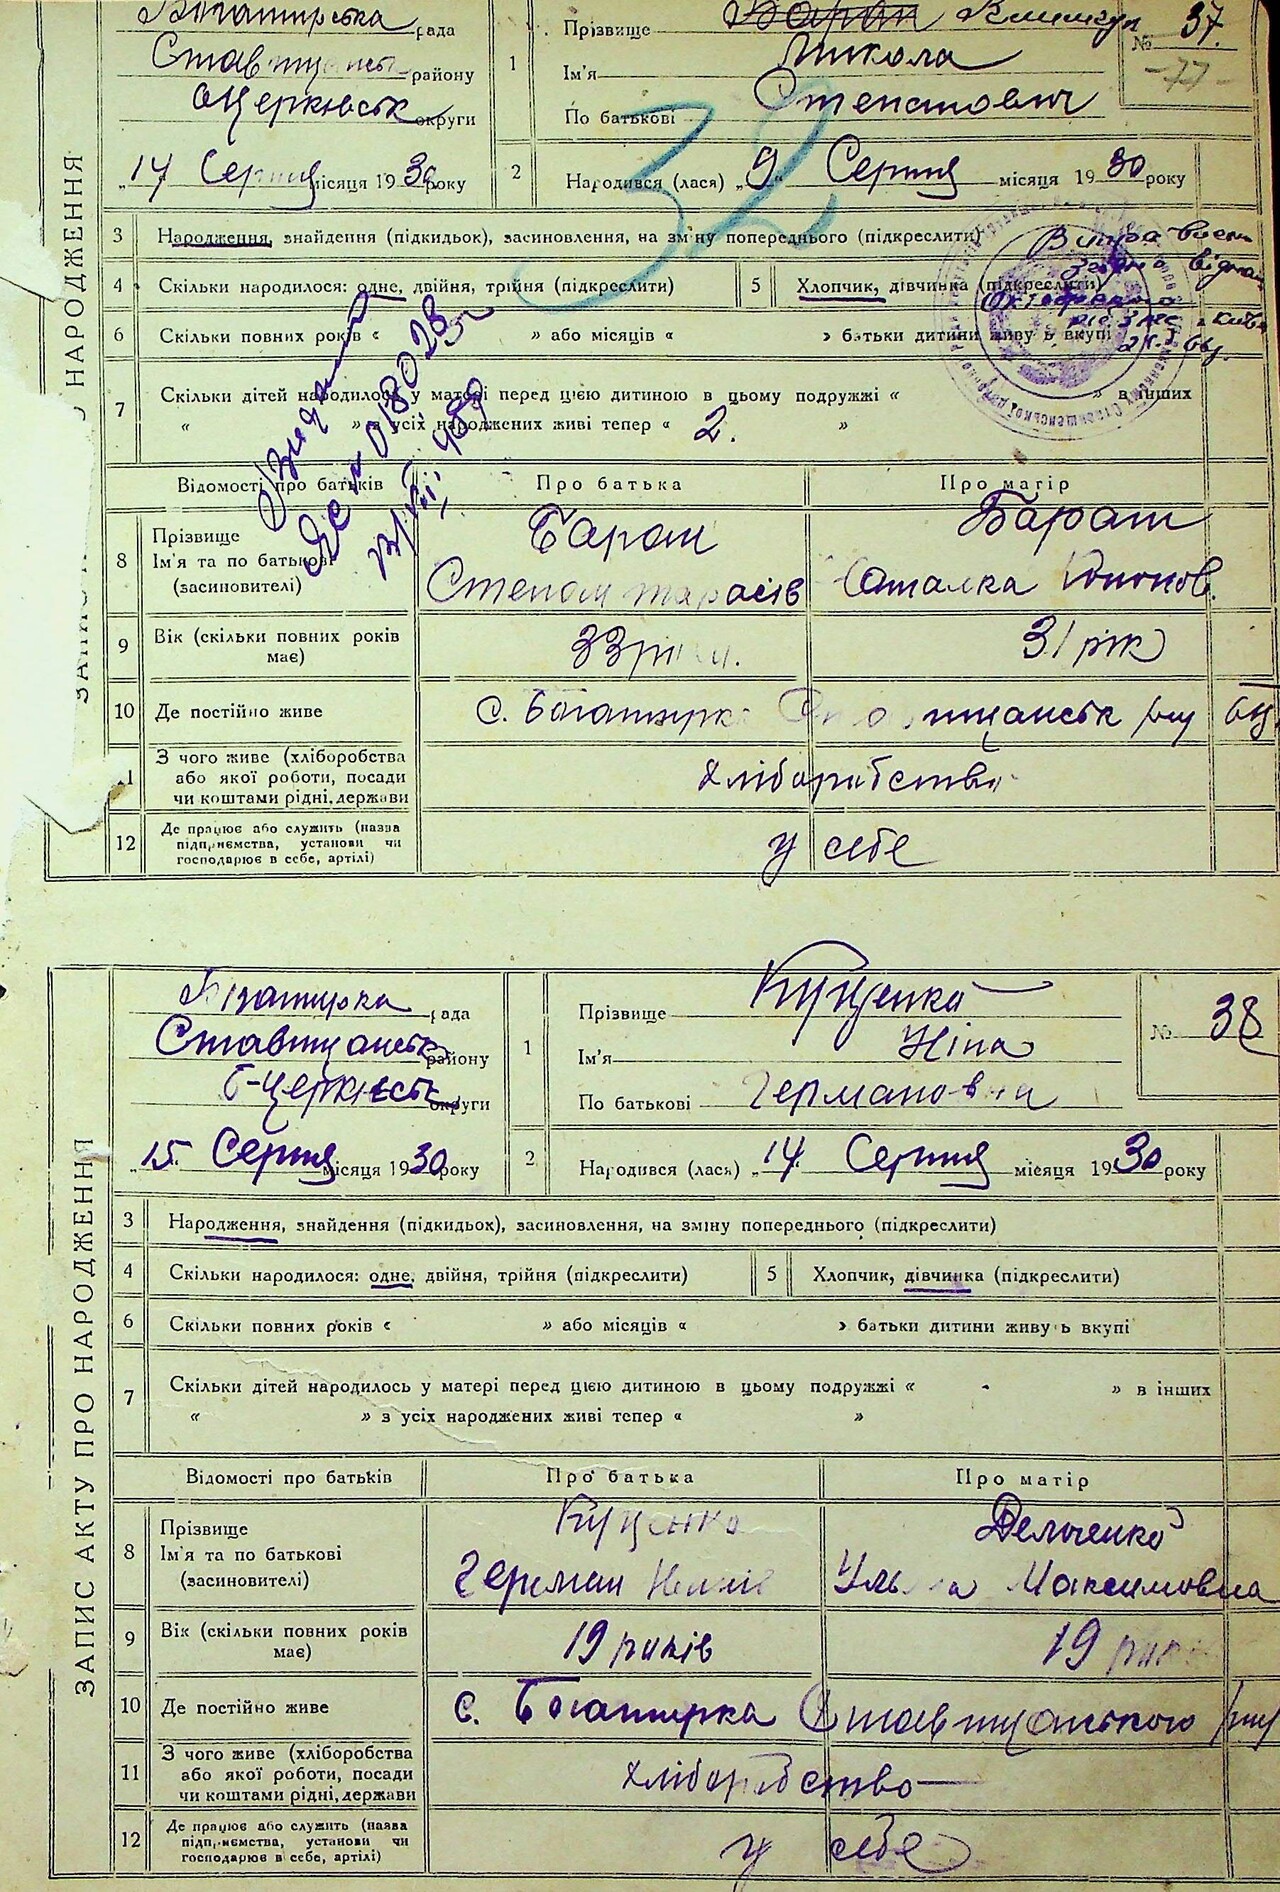 ЗАПИС АКТУ ПРО НАРОДЖЕННЯ
Богатирська рада
Ставищанськ району
БЦерківськ округи
„14 Серпня місяця 1930 року
1
Прізвище Баран Климчук
Ім'я Микола
По батькові Степанович
№ 37.
-77-
32
2
Народився (лася) „9“ Серпня місяця 1930 року
3 Народження, знайдення (підкидьок), засиновлення, на зміну попереднього (підкреслити)
4 Скільки народилося: одне, двійня, трійня (підкреслити)
5 Хлопчик, дівчинка (підкреслити)
6 Скільки повних років « » або місяців « » батьки дитини живуть вкупі
7 Скільки дітей народилось у матері перед цією дитиною в цьому подружжі « » в інших
« » з усіх народжених живі тепер « 2. »
018023
Відомості про батьків
Про батька
Про матір
8 Прізвище
Ім'я та по батькові
(засиновителі)
Баран
Степан Тарасів
Баран
Наталка Кононов.
9 Вік (скільки повних років має)
33 роки.
31 рік
10 Де постійно живе
с. Богатирка Ставищанськ р-ну БЦ.
11 З чого живе (хліборобства
або якої роботи, посади
чи коштами рідні, держави
хліборобство
12 Де працює або служить (назва
підприємства, установи чи
господарює в себе, артілі)
у себе
ЗАПИС АКТУ ПРО НАРОДЖЕННЯ
Богатирка рада
Ставищанськ району
Б-Церківськ округи
„15. Серпня місяця 1930 року
1
Прізвище Куценко
Ім'я Ніна
По батькові Германовна
№ 38
2
Народився (лася) „14. Серпня місяця 1930 року
3 Народження, знайдення (підкидьох), засиновлення, на зміну попереднього (підкреслити)
4 Скільки народилося: одне, двійня, трійня (підкреслити)
5 Хлопчик, дівчинка (підкреслити)
6 Скільки повних років « » або місяців « » батьки дитини живуть вкупі
7 Скільки дітей народилось у матері перед цією дитиною в цьому подружжі « - » в інших
« » з усіх народжених живі тепер « »
Відомості про батьків
Про батька
Про матір
8 Прізвище
Ім'я та по батькові
(засиновителі)
Куценко
Герман
Демченко
Уляна Максимовна
9 Вік (скільки повних років має)
19 років
19 років
10 Де постійно живе
с. Богатирка Ставищанського р-ну
11 З чого живе (хліборобства
або якої роботи, посади
чи коштами рідні, держави
хліборобство
12 Де працює або служить (назва
підприємства, установи чи
господарює в себе, артілі)
у себе